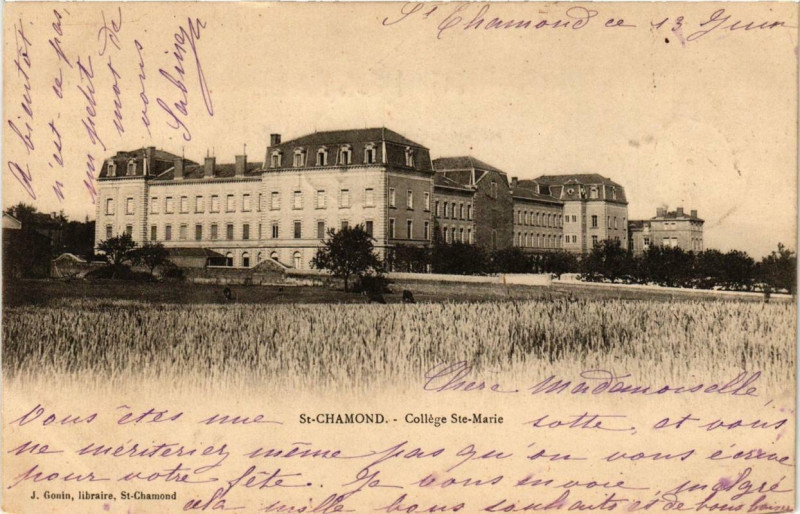 St Chamond ce 13 Juin
Chère Mademoiselle,
St-CHAMOND. - Collège Ste-Marie
Vous êtes une sotte, et vous
ne mériteriez même pas qu'on vous écrive
pour votre fête. Je vous envoie, malgré
cela mille bons souhaits et de bons
J. Gouin, libraire, St-Chamond
A bientôt
n'est ce pas,
un petit
mot de
vous
Sabine